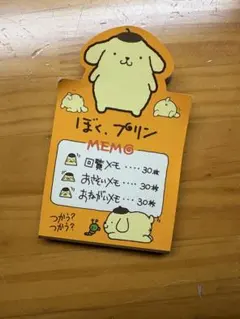 ぼく、プリン
MEMO
回覧メモ‥‥30枚
おさそいメモ‥‥30枚
おねがいメモ‥‥30枚
つかう?
つかう?